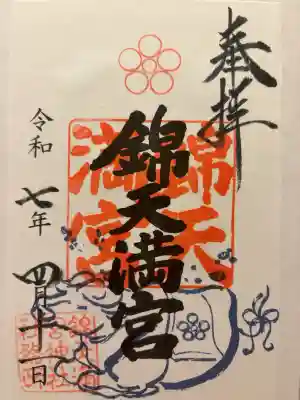 奉拝
錦天満宮
錦天
満宮
令和七年四月十一日